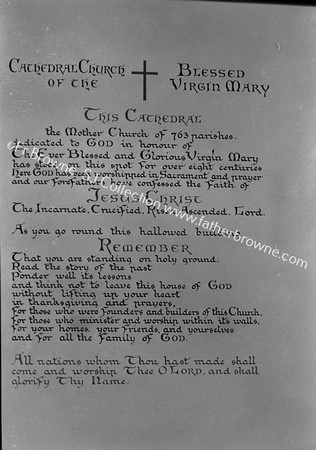 Cathedral Church Blessed
of the Virgin Mary
This Cathedral
the Mother Church of 763 parishes.
dedicated to GOD in honour of
The Ever Blessed and Glorious Virgin Mary
has stood on this spot for over eight centuries
Here GOD has been worshipped in Sacrament and prayer
and our forefathers have confessed the Faith of
Jesus Christ
The Incarnate, Crucified, Risen, Ascended, Lord.
As you go round this hallowed building
Remember
That you are standing on holy ground.
Read the story of the past
Ponder well its lessons
and think not to leave this house of GOD
without lifting up your heart
in thanksgiving and prayers,
for those who were founders and builders of this Church,
for those who minister and worship within its walls,
for your homes, your friends, and yourselves
and for all the Family of GOD.
All nations whom Thou hast made shall
come and worship Thee O LORD, and shall
glorify Thy Name.
Collection
www.fatherbrowne.com